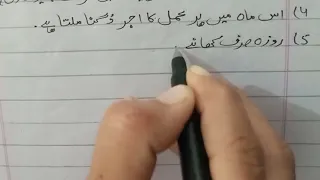 4) اس ماہ میں ہر عمل کا اجر دُگنا ملتا ہے۔
5) روزہ صرف کھانے